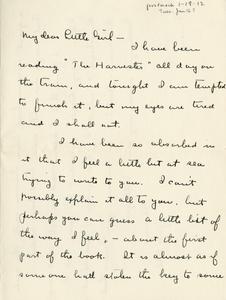 postmark 1-28-12
My dear Little Girl —
I have been
reading "The Harvester" all day on
the train, and tonight I am tempted
to finish it, but my eyes are tired
and I shall not.
I have been so absorbed in
it that I feel a little bit at sea
trying to write to you. I can't
possibly explain it all to you, but
perhaps you can guess a little bit of
the way I feel, — about the first
part of the book. It is almost as if
someone had stolen the key to some